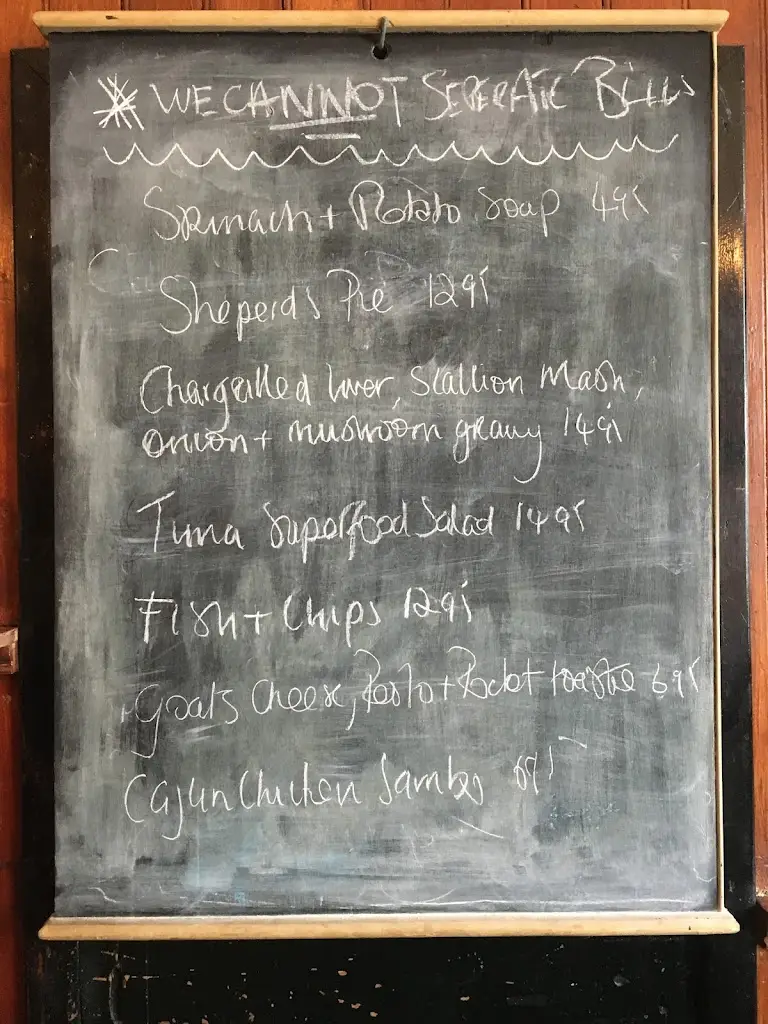 * WE CANNOT SEPERATE BILLS
Spinach + Potato Soup 495
Sheperd's Pie 1295
Chargrilled liver, Scallion Mash,
onion + mushroom gravy 1495
Tuna Superfood Salad 1495
Fish + Chips 1295
Goats Cheese, Pesto + Rocket toastie 695
Cajun Chicken Sambo 695